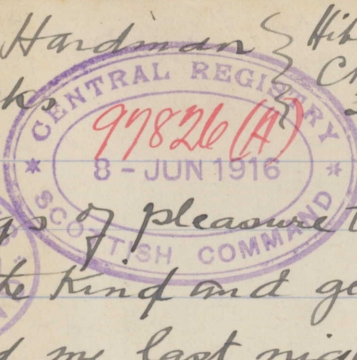 Hardman
ks
CENTRAL REGISTRY
97826(A)
8-JUN 1916
SCOTTISH COMMAND
of pleasure
the kind and
me last